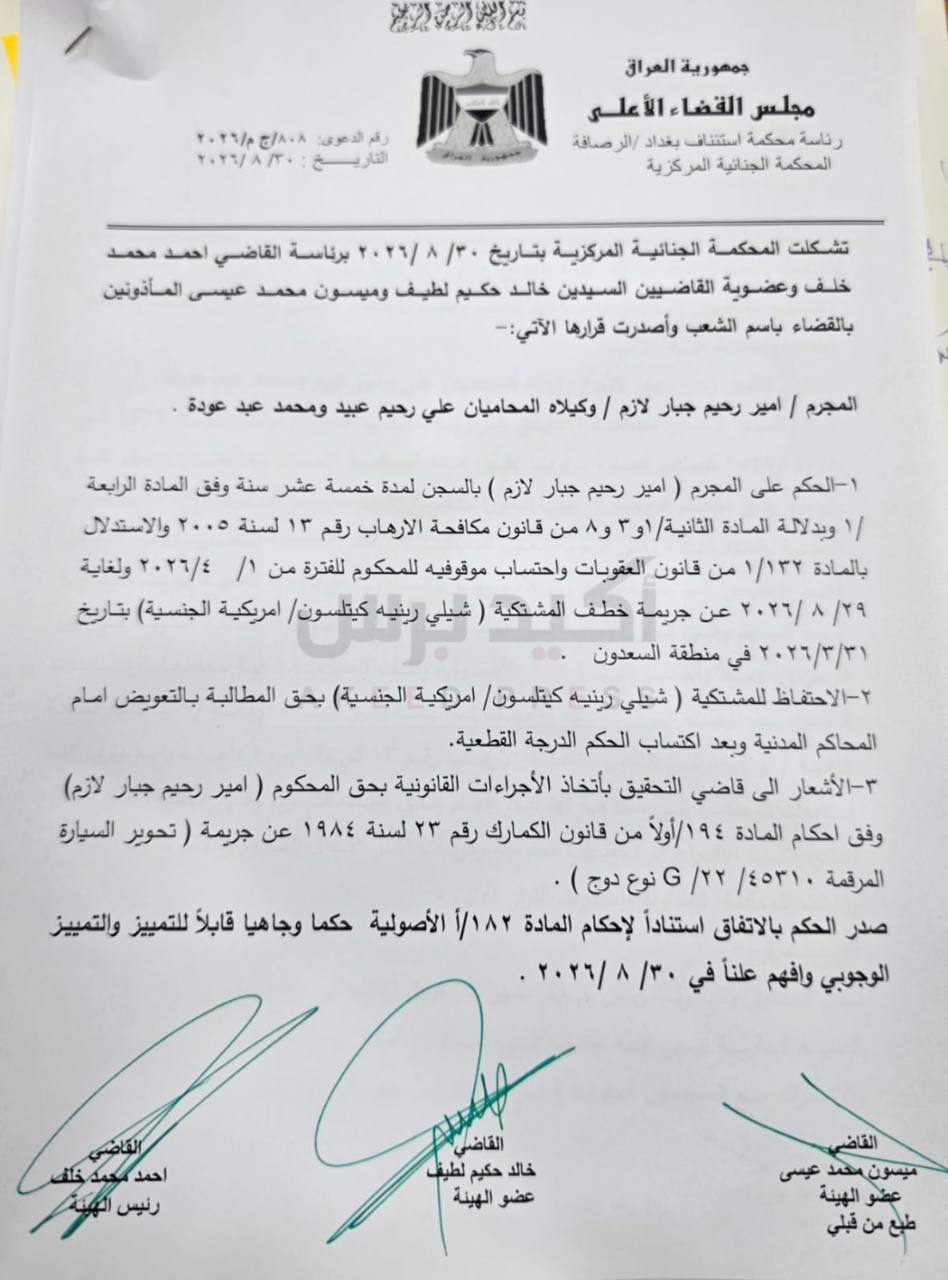 بسم الله الرحمن الرحيم
جمهورية العراق
مجلس القضاء الأعلى
رئاسة محكمة استئناف بغداد /الرصافة
المحكمة الجنائية المركزية
رقم الدعوى: ٨٠٨/ج م/٢٠٢٦
التاريـــخ : ٣٠/ ٨ /٢٠٢٦
جمهورية العراق
تشكلت المحكمة الجنائية المركزية بتاريخ ٣٠/ ٨ /٢٠٢٦ برئاسة القاضي احمد محمد
خلف وعضوية القاضيين السيدين خالد حكيم لطيف وميسون محمد عيسى المأذونين
بالقضاء باسم الشعب وأصدرت قرارها الآتي:-
المجرم / امير رحيم جبار لازم / وكيلاه المحاميان علي رحيم عبيد ومحمد عبد عودة .
١-الحكم على المجرم ( امير رحيم جبار لازم ) بالسجن لمدة خمسة عشر سنة وفق المادة الرابعة
/١ وبدلالة المادة الثانية/١و٣ و٨ من قانون مكافحة الارهاب رقم ١٣ لسنة ٢٠٠٥ والاستدلال
بالمادة ١/١٣٢ من قانون العقوبات واحتساب موقوفيه للمحكوم للفترة من ١/ ٢٠٢٦/٤ ولغاية
٢٩/ ٨ /٢٠٢٦ عن جريمة خطف المشتكية ( شيلي رينيه كيتلسون/ امريكية الجنسية) بتاريخ
٢٠٢٦/٣/٣١ في منطقة السعدون .
٢-الاحتفاظ للمشتكية ( شيلي رينيه كيتلسون/ امريكية الجنسية) بحق المطالبة بالتعويض امام
المحاكم المدنية وبعد اكتساب الحكم الدرجة القطعية.
٣-الأشعار الى قاضي التحقيق بأتخاذ الأجراءات القانونية بحق المحكوم ( امير رحيم جبار لازم)
وفق احكام المادة ١٩٤/أولاً من قانون الكمارك رقم ٢٣ لسنة ١٩٨٤ عن جريمة ( تحوير السيارة
المرقمة ٤٥٣١٠/ ٢٢/ G نوع دوج ) .
صدر الحكم بالاتفاق استناداً لإحكام المادة ١٨٢/أ الأصولية حكما وجاهيا قابلاً للتمييز والتمييز
الوجوبي وافهم علناً في ٣٠/ ٨ /٢٠٢٦ .
القاضي
ميسون محمد عيسى
عضو الهيئة
طبع من قبلي
القاضي
خالد حكيم لطيف
عضو الهيئة
القاضي
احمد محمد خلف
رئيس الهيئة
أكيد برس